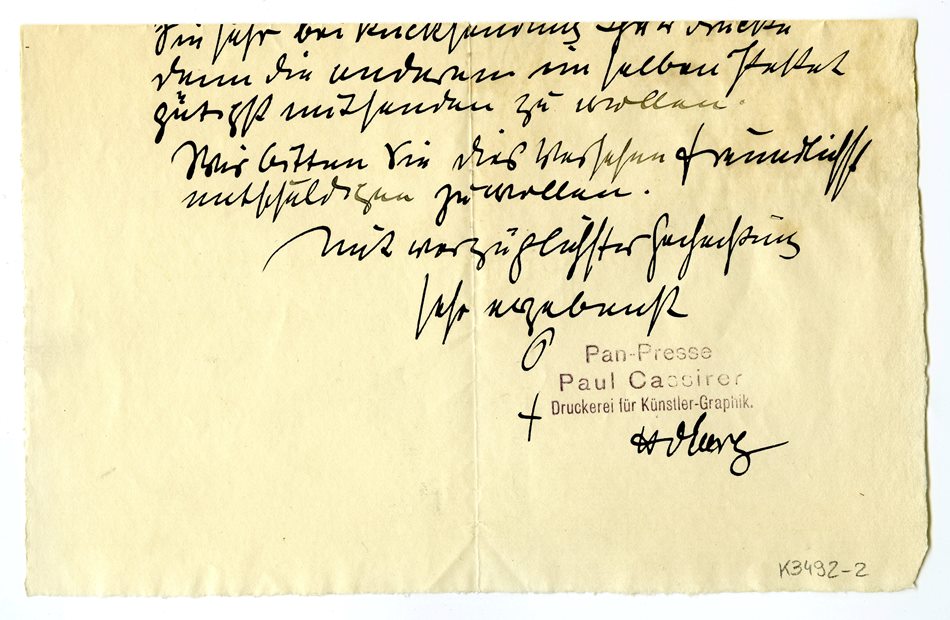 Sie sehr bei Rücksendung Ihrer Drucke
denn die anderen im selben Packet
gütigst mitsenden zu wollen.
Wir bitten Sie dies Versehen freundlichst
entschuldigen zu wollen.
Mit vorzüglichster Hochachtung
sehr ergebenst
Pan-Presse
Paul Cassirer
Druckerei für Künstler-Graphik.
K3492-2